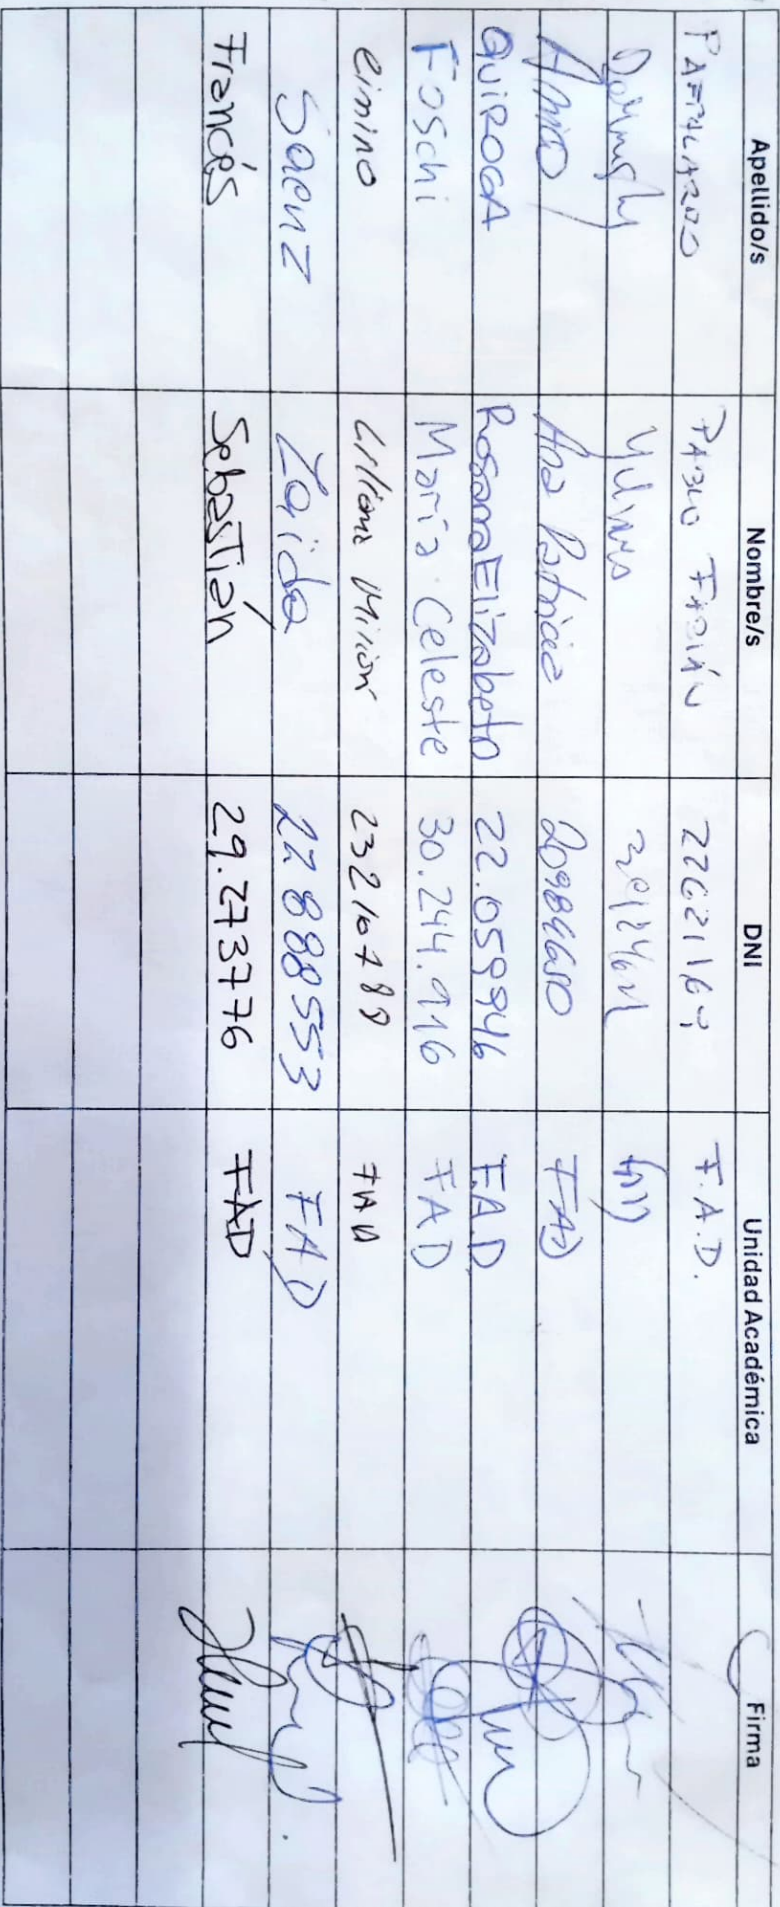 Apellido/s Nombre/s DNI Unidad Académica Firma
PABLO FABIÁN 22621164 F.A.D.
AMICO Ana Patricia 20984650 FAD
QUIROGA Rosana Elizabeth 22.059946 F.A.D.
Foschi María Celeste 30.244.916 FAD
Cimino Liliana Miriam 23210789 FAD
Saenz Zaida 27888553 FAD
Francés Sebastián 29.273776 FAD